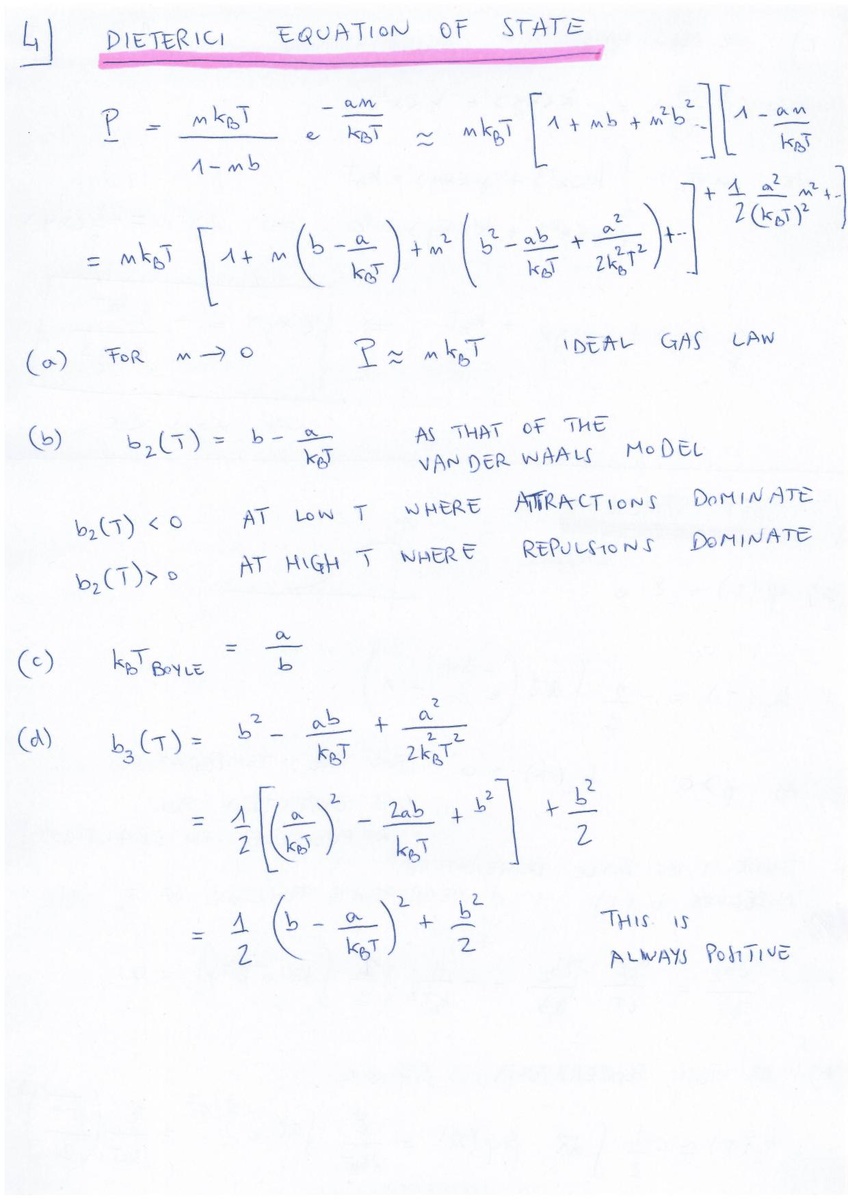 4) DIETERICI EQUATION OF STATE
P = nk_BT / (1 - nb) e^(-an/k_BT) ≈ nk_BT [1 + nb + n²b² ..] [1 - an/k_BT + 1/2 a²/(k_BT)² n² + ..]
= nk_BT [1 + n (b - a/k_BT) + n² (b² - ab/k_BT + a²/2k_B²T²) + ..]
(a) FOR n → 0 P ≈ nk_BT IDEAL GAS LAW
(b) b₂(T) = b - a/k_BT AS THAT OF THE
VAN DER WAALS MODEL
b₂(T) < 0 AT LOW T WHERE ATTRACTIONS DOMINATE
b₂(T) > 0 AT HIGH T WHERE REPULSIONS DOMINATE
(c) k_BT_BOYLE = a/b
(d) b₃(T) = b² - ab/k_BT + a²/2k_B²T²
= 1/2 [(a/k_BT)² - 2ab/k_BT + b²] + b²/2
= 1/2 (b - a/k_BT)² + b²/2 THIS IS
ALWAYS POSITIVE